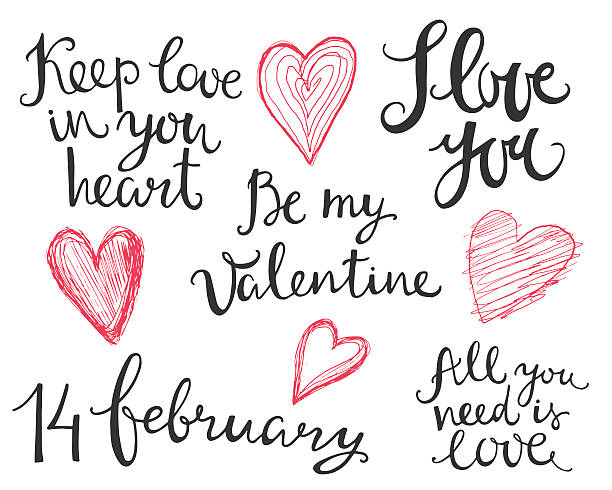 Keep love
in you
heart
I love
you
Be my
Valentine
14 february
All you
need is
love